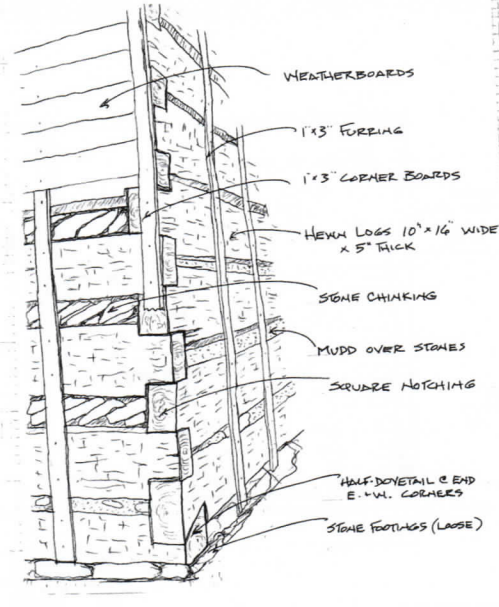 WEATHERBOARDS
1"x3" FURRING
1"x3" CORNER BOARDS
HEWN LOGS 10"x16" WIDE
x 5" THICK
STONE CHINKING
MUDD OVER STONES
SQUARE NOTCHING
HALF-DOVETAIL @ END
E. + W. CORNERS
STONE FOOTINGS (LOOSE)